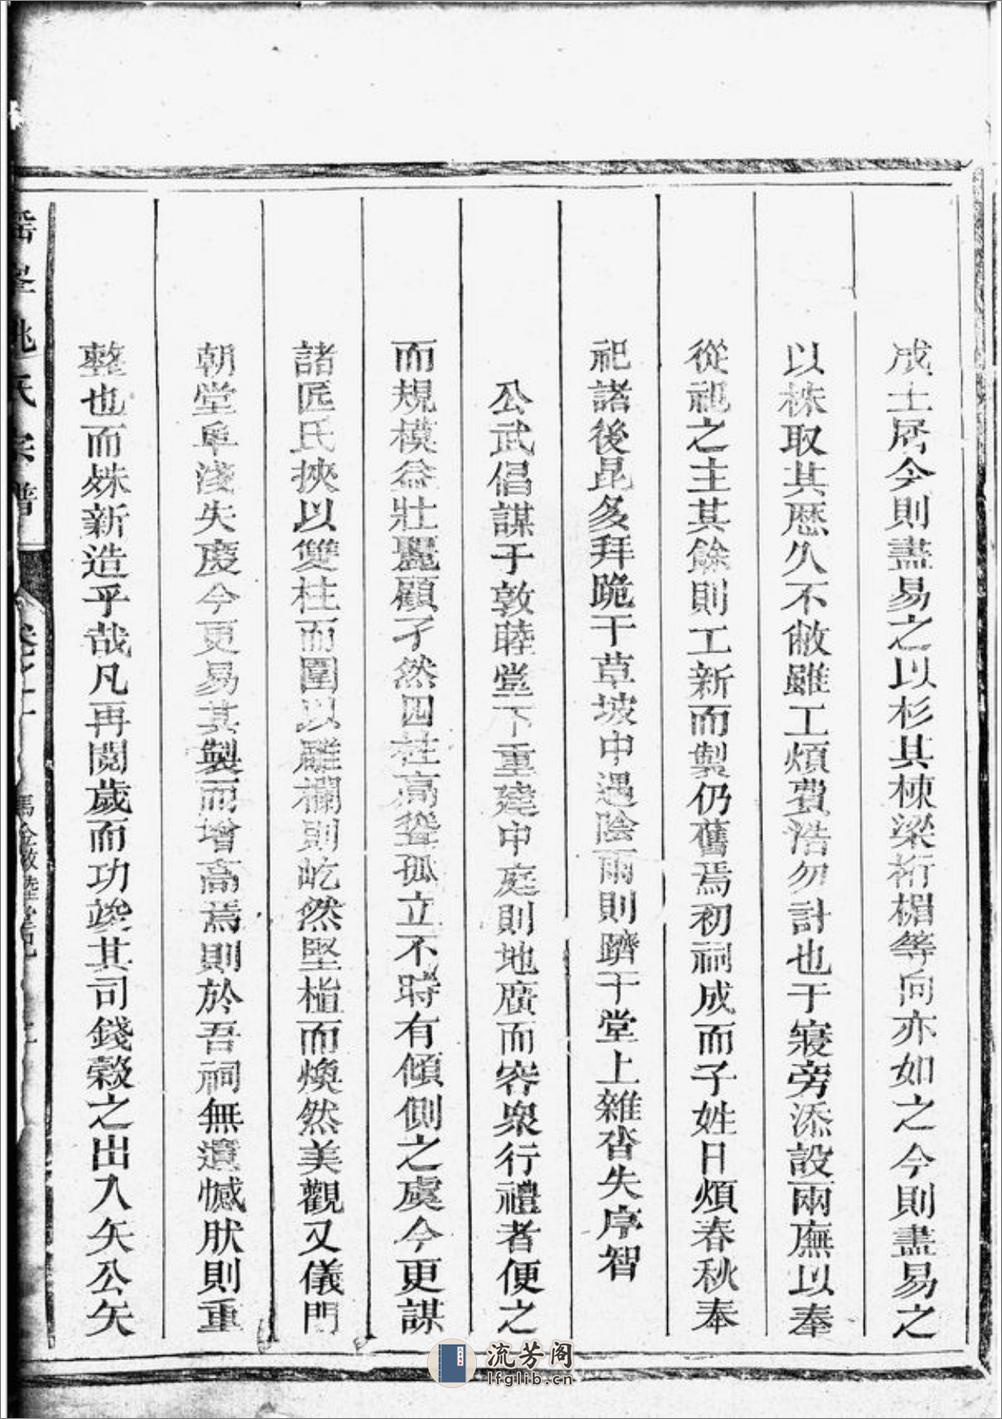 成土居今則盡易之以杉其棟梁桁楣等向亦如之今則盡易之
以株取其歷久不敝雖工煩費浩勿計也于寢旁添設兩廡以奉
從祀之主其餘則工新而製仍舊焉初祠成而子姓日煩春秋奉
祀諸後昆多拜跪于草坡中遇陰雨則躋于堂上雜沓失序智
公武倡謀于敦睦堂下重建中庭則地廣而容衆行禮者便之
而規模益壯麗顧孑然四柱高聳孤立不時有傾側之虞今更謀
諸匠氏挾以雙柱而圍以雕欄則屹然堅植而煥然美觀又儀門
朝堂卑淺失度今更易其製而增高焉則於吾祠無遺憾肰則重
整也而殊新造乎哉凡再閱歲而功竣其司錢穀之出入矢公矢
姚氏宗譜
馬金敦睦堂記
流芳阁
lfglib.cn